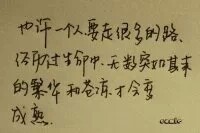 也许一个人要走很多的路、
经历过生命中无数突如其来
的繁华和苍凉才会变
成熟.